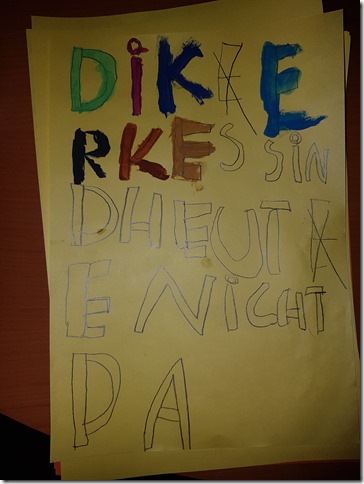 DiKE
RKES SiN
DHEUT
E NiCHT
DA